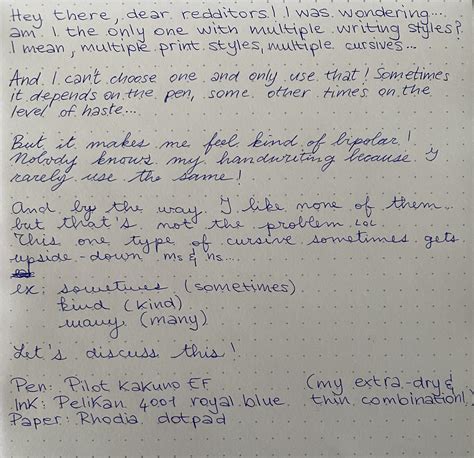 Hey there, dear redditors! I was wondering...
am I the only one with multiple writing styles?
I mean, multiple print styles, multiple cursives...
And I can't choose one and only use that! Sometimes
it depends on the pen, some other times on the
level of haste...
But it makes me feel kind of bipolar!
Nobody knows my handwriting because I
rarely use the same!
And by the way I like none of them..
but that's not the problem LOL
This one type of cursive sometimes gets
upside-down ms & ns...
ex: sometimes (sometimes)
kind (kind)
many (many)
Let's discuss this!
Pen: Pilot Kakuno EF (my extra-dry &
Ink: Pelikan 4001 royal blue thin combination!)
Paper: Rhodia dotpad